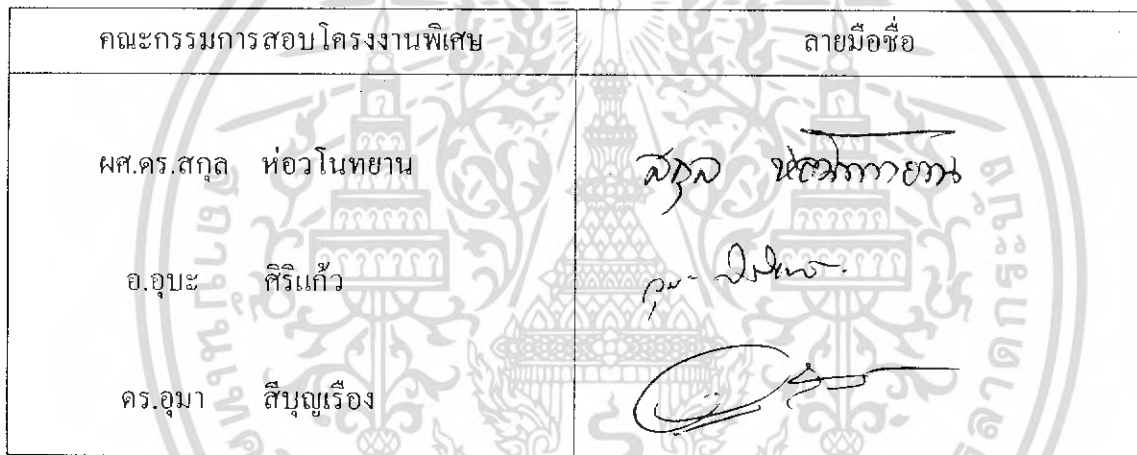 คณะกรรมการสอบโครงงานพิเศษ ลายมือชื่อ
ผศ.ดร.สกุล ห่อวโนทยาน สกุล ห่อวโนทยาน
อ.อุบะ ศิริแก้ว
ดร.อุมา สีบุญเรือง